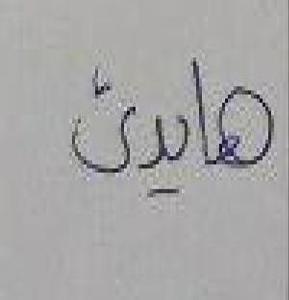 هايدئ